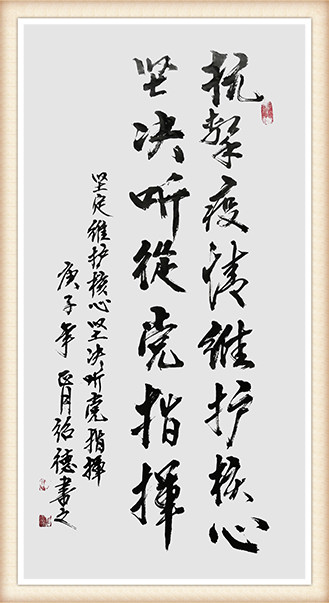 抗擊疫情维护核心
坚决听從党指揮
坚定维护核心坚决听党指揮
庚子年正月绍德書之